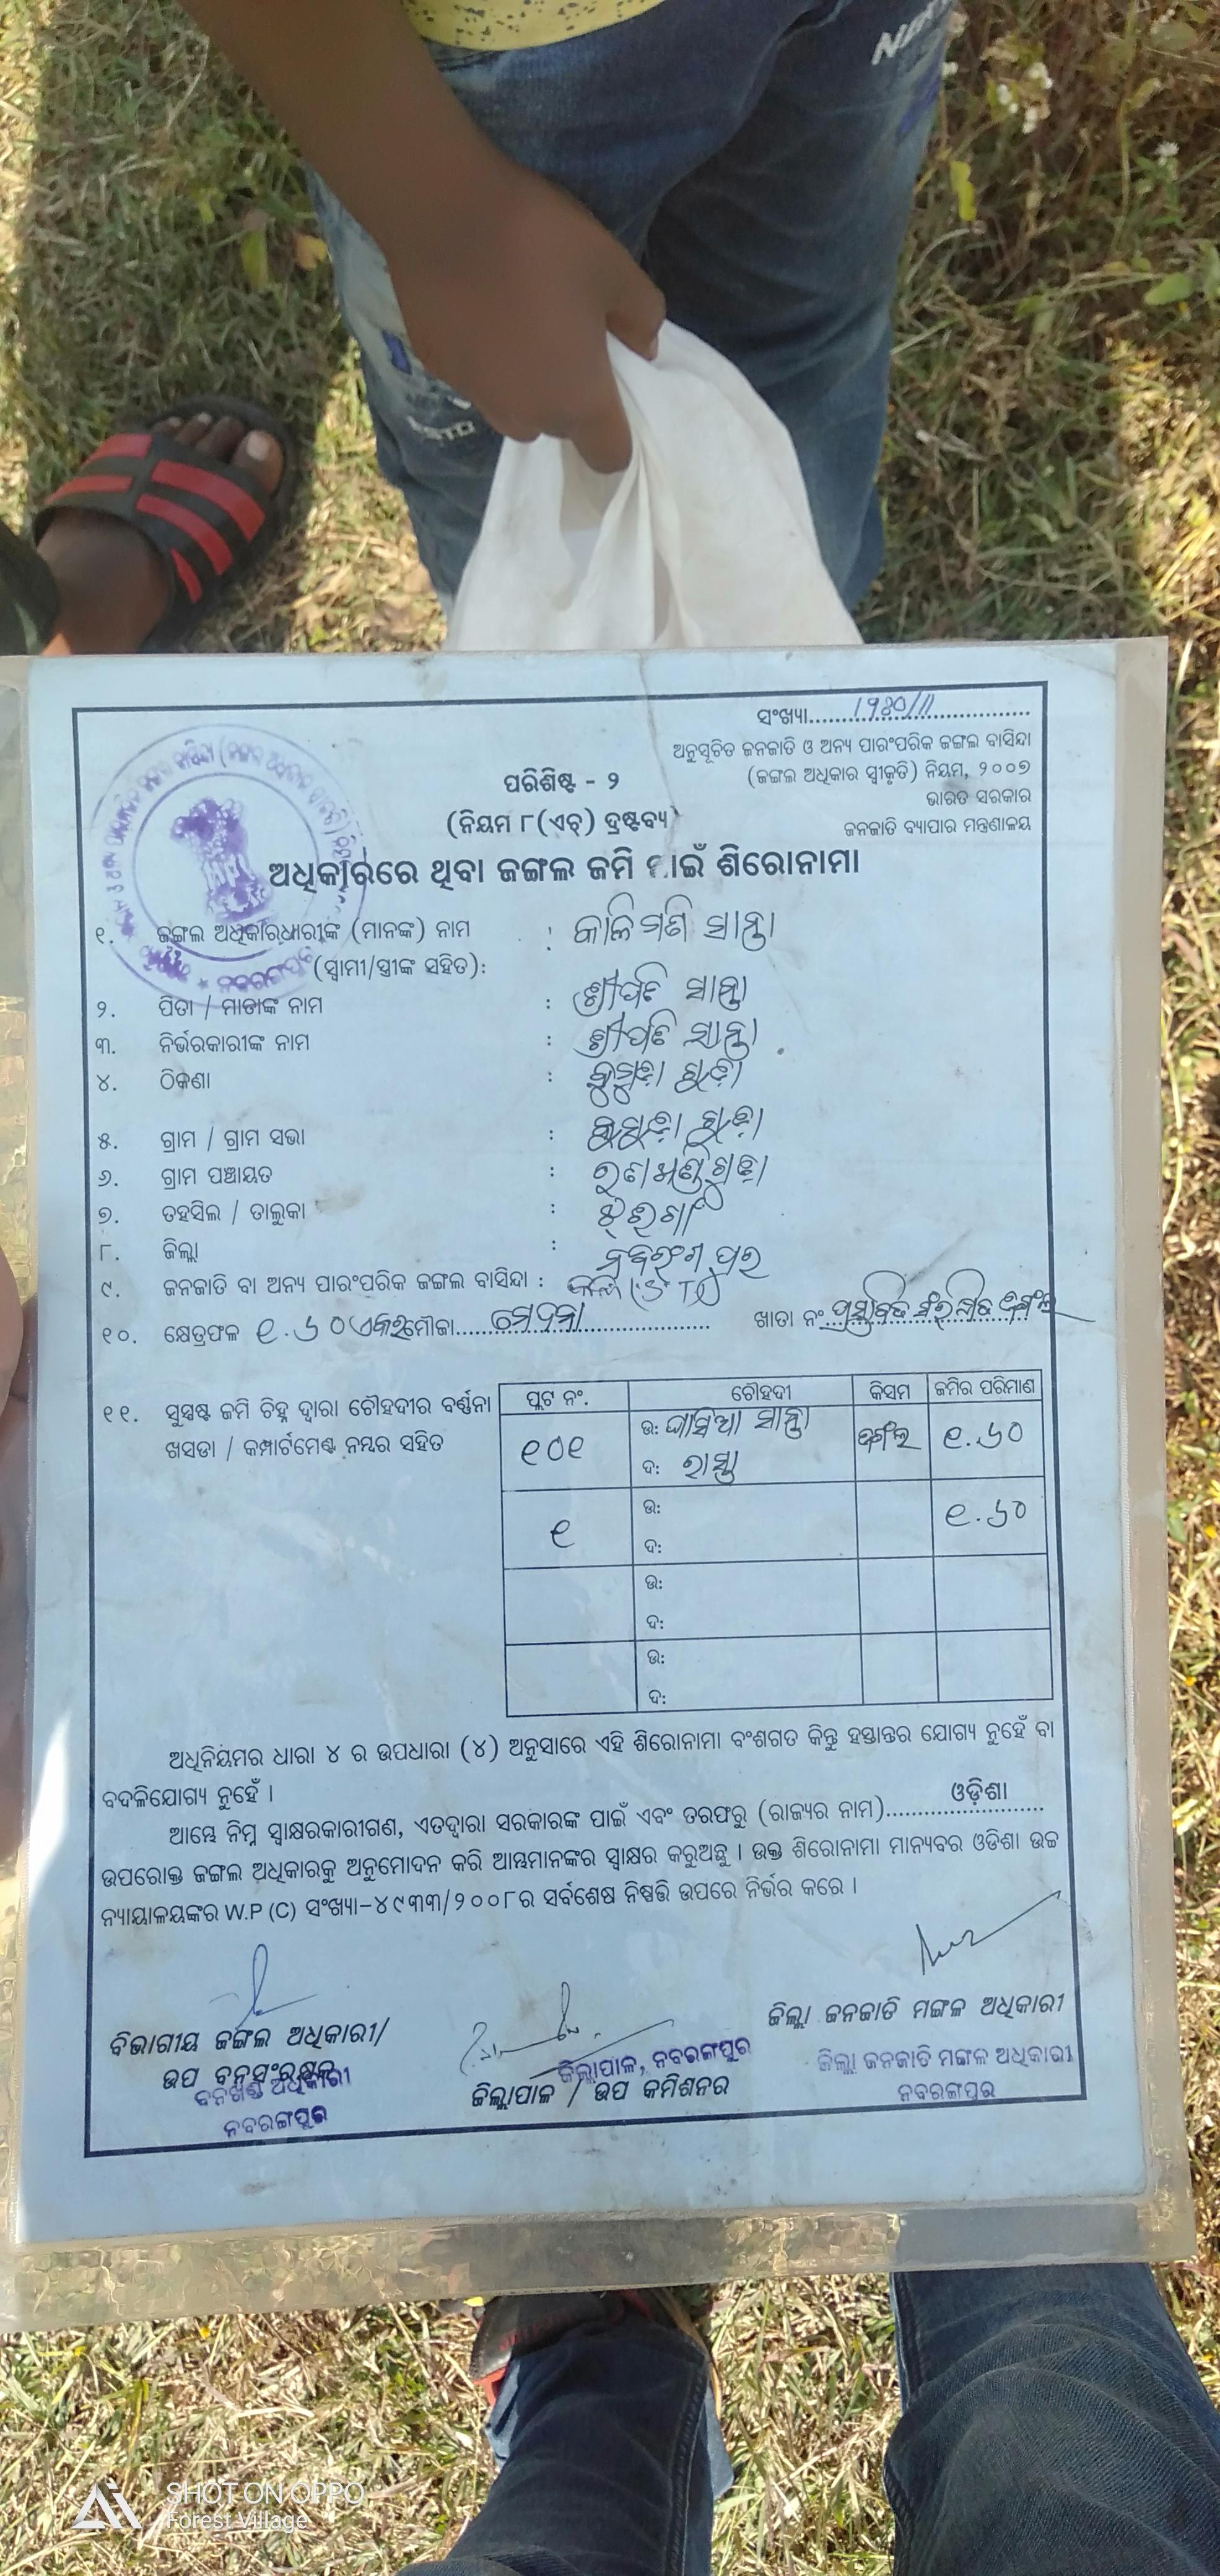 ସଂଖ୍ୟା..................................
ଅନୁସୂଚିତ ଜନଜାତି ଓ ଅନ୍ୟ ପାରଂପରିକ ଜଙ୍ଗଲ ବାସିନ୍ଦା
(ଜଙ୍ଗଲ ଅଧିକାର ସ୍ୱୀକୃତି) ନିୟମ, ୨୦୦୭
ଭାରତ ସରକାର
ଜନଜାତି ବ୍ୟାପାର ମନ୍ତ୍ରଣାଳୟ
ପରିଶିଷ୍ଟ - ୨
(ନିୟମ ୮(ଏଚ୍) ଦ୍ରଷ୍ଟବ୍ୟ)
ଅଧିକାରରେ ଥିବା ଜଙ୍ଗଲ ଜମି ପାଇଁ ଶିରୋନାମା
୧. ଜଙ୍ଗଲ ଅଧିକାରଧାରୀଙ୍କ (ମାନଙ୍କ) ନାମ : କାଳିମଣି ସାନ୍ତା
(ସ୍ୱାମୀ/ସ୍ତ୍ରୀଙ୍କ ସହିତ):
୨. ପିତା / ମାତାଙ୍କ ନାମ : ଶ୍ରୀପତି ସାନ୍ତା
୩. ନିର୍ଭରକାରୀଙ୍କ ନାମ : ଶ୍ରୀପତି ସାନ୍ତା
୪. ଠିକଣା :
୫. ଗ୍ରାମ / ଗ୍ରାମ ସଭା :
୬. ଗ୍ରାମ ପଞ୍ଚାୟତ :
୭. ତହସିଲ / ତାଲୁକା : ଝରିଗାଁ
୮. ଜିଲ୍ଲା : ନବରଂଗପୁର
୯. ଜନଜାତି ବା ଅନ୍ୟ ପାରଂପରିକ ଜଙ୍ଗଲ ବାସିନ୍ଦା : (ST)
୧୦. କ୍ଷେତ୍ରଫଳ ୧.୬୦ ଏକର ମୌଜା.................................... ଖାତା ନଂ ଜଙ୍ଗଲ
୧୧. ସୁସ୍ପଷ୍ଟ ଜମି ଚିହ୍ନ ଦ୍ୱାରା ଚୌହଦୀର ବର୍ଣ୍ଣନା
ଖସଡା / କମ୍ପାର୍ଟମେଣ୍ଟ ନମ୍ବର ସହିତ
ପ୍ଲଟ ନଂ. ଚୌହଦୀ କିସମ ଜମିର ପରିମାଣ
୧୦୧ ଉ: ଘାସିଆ ସାନ୍ତା ଜଙ୍ଗଲ ୧.୬୦
ଦ: ରାସ୍ତା
୧ ଉ: ୧.୬୦
ଦ:
ଉ:
ଦ:
ଉ:
ଦ:
ଅଧିନିୟମର ଧାରା ୪ ର ଉପଧାରା (୪) ଅନୁସାରେ ଏହି ଶିରୋନାମା ବଂଶଗତ କିନ୍ତୁ ହସ୍ତାନ୍ତର ଯୋଗ୍ୟ ନୁହେଁ ବା
ବଦଳିଯୋଗ୍ୟ ନୁହେଁ ।
ଆମ୍ଭେ ନିମ୍ନ ସ୍ୱାକ୍ଷରକାରୀଗଣ, ଏତଦ୍ୱାରା ସରକାରଙ୍କ ପାଇଁ ଏବଂ ତରଫରୁ (ରାଜ୍ୟର ନାମ)......ଓଡ଼ିଶା......
ଉପରୋକ୍ତ ଜଙ୍ଗଲ ଅଧିକାରକୁ ଅନୁମୋଦନ କରି ଆମ୍ଭମାନଙ୍କର ସ୍ୱାକ୍ଷର କରୁଅଛୁ । ଉକ୍ତ ଶିରୋନାମା ମାନ୍ୟବର ଓଡିଶା ଉଚ୍ଚ
ନ୍ୟାୟାଳୟଙ୍କର W.P (C) ସଂଖ୍ୟା-୪୯୩୩/୨୦୦୮ର ସର୍ବଶେଷ ନିଷ୍ପତ୍ତି ଉପରେ ନିର୍ଭର କରେ ।
ବିଭାଗୀୟ ଜଙ୍ଗଲ ଅଧିକାରୀ/
ଉପ ବନସଂରକ୍ଷକ
ବନଖଣ୍ଡ ଅଧିକାରୀ
ନବରଙ୍ଗପୁର
ଜିଲ୍ଲାପାଳ, ନବରଙ୍ଗପୁର
ଜିଲ୍ଲାପାଳ / ଉପ କମିଶନର
ଜିଲ୍ଲା ଜନଜାତି ମଙ୍ଗଳ ଅଧିକାରୀ
ଜିଲ୍ଲା ଜନଜାତି ମଙ୍ଗଳ ଅଧିକାରୀ
ନବରଙ୍ଗପୁର
SHOT ON OPPO
Forest Village